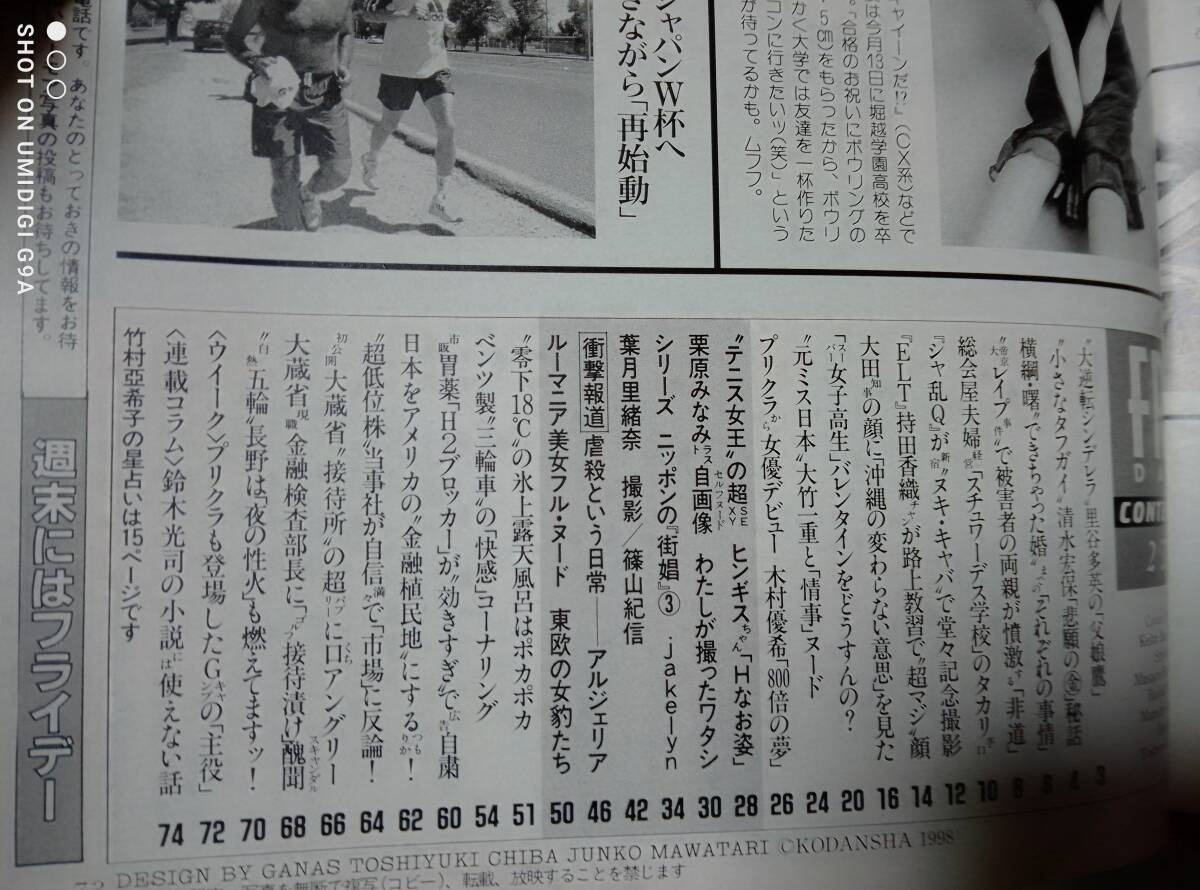 ャイーンだ!?」(CX系)などで
は今月13日に堀越学園高校を卒
。「合格のお祝いにボウリングの
5㎝)をもらったから、ボウリ
かく大学では友達を一杯作りた
コンに行きたいッ(笑)」という
が待ってるかも。ムフフ。
ジャパンW杯へ
さながら「再始動」
電話です。あなたのとっておきの情報をお待
写真の投稿もお待ちしてます。
週末にはフライデー
CONTE
"大逆転シンデレラ"里谷多英の「父娘鷹」 3
"小さなタフガイ"清水宏保「悲願の㊎」秘話 4
横綱・曙"できちゃった婚"までの「それぞれの事情」 6
"帝京大レイプ事件"で被害者の両親が憤激する「非道」 8
総会屋夫婦経営「スチュワーデス学校」のタカリ手口 10
『シャ乱Q』が新宿"ヌキ・キャバ"で堂々記念撮影 12
『ELT』持田香織チャンが路上教習で"超マジ"顔 14
大田知事の顔に「沖縄の変わらない意思」を見た 16
「スーパー女子高生」バレンタインをどうすんの? 20
"元ミス日本"大竹一重と「情事」ヌード 24
プリクラから女優デビュー 木村優希「800倍の夢」 26
"テニス女王"の超SEXY ヒンギスちゃん「Hなお姿」 28
栗原みなみラスト自画像セルフヌード わたしが撮ったワタシ 30
シリーズ ニッポンの『街娼』③ jakelyn 34
葉月里緒奈 撮影/篠山紀信 42
衝撃報道 虐殺という日常――アルジェリア 46
ルーマニア美女フル・ヌード 東欧の女豹たち 50
"零下18℃"の氷上露天風呂はポカポカ 51
ベンツ製"三輪車"の「快感」コーナリング 54
市販胃薬「H2ブロッカー」が"効きすぎ"で広告自粛 60
日本をアメリカの"金融植民地"にするつもりか! 62
"超低位株"当事社が自信満々で「市場」に反論! 64
初公開 大蔵省"接待所"の超バブリーに口くちアングリー 66
大蔵省現職金融検査部長に「ゴルフ接待漬け」醜聞スキャンダル 68
"白熱五輪"長野は「夜の性火」も燃えてますッ! 70
〈ウイーク〉プリクラも登場したGキャンズの「主役」 72
〈連載コラム〉鈴木光司の小説には使えない話 74
竹村亞希子の星占いは15ページです
DESIGN BY GANAS TOSHIYUKI CHIBA JUNKO MAWATARI ©KODANSHA 1998
写真を無断で複写(コピー)、転載、放映することを禁じます
SHOT ON UMIDIGI G9A